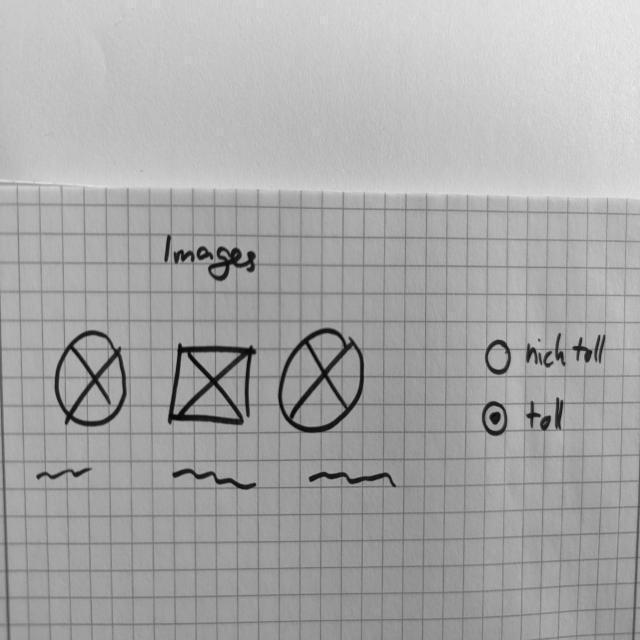 Images
nich toll
toll